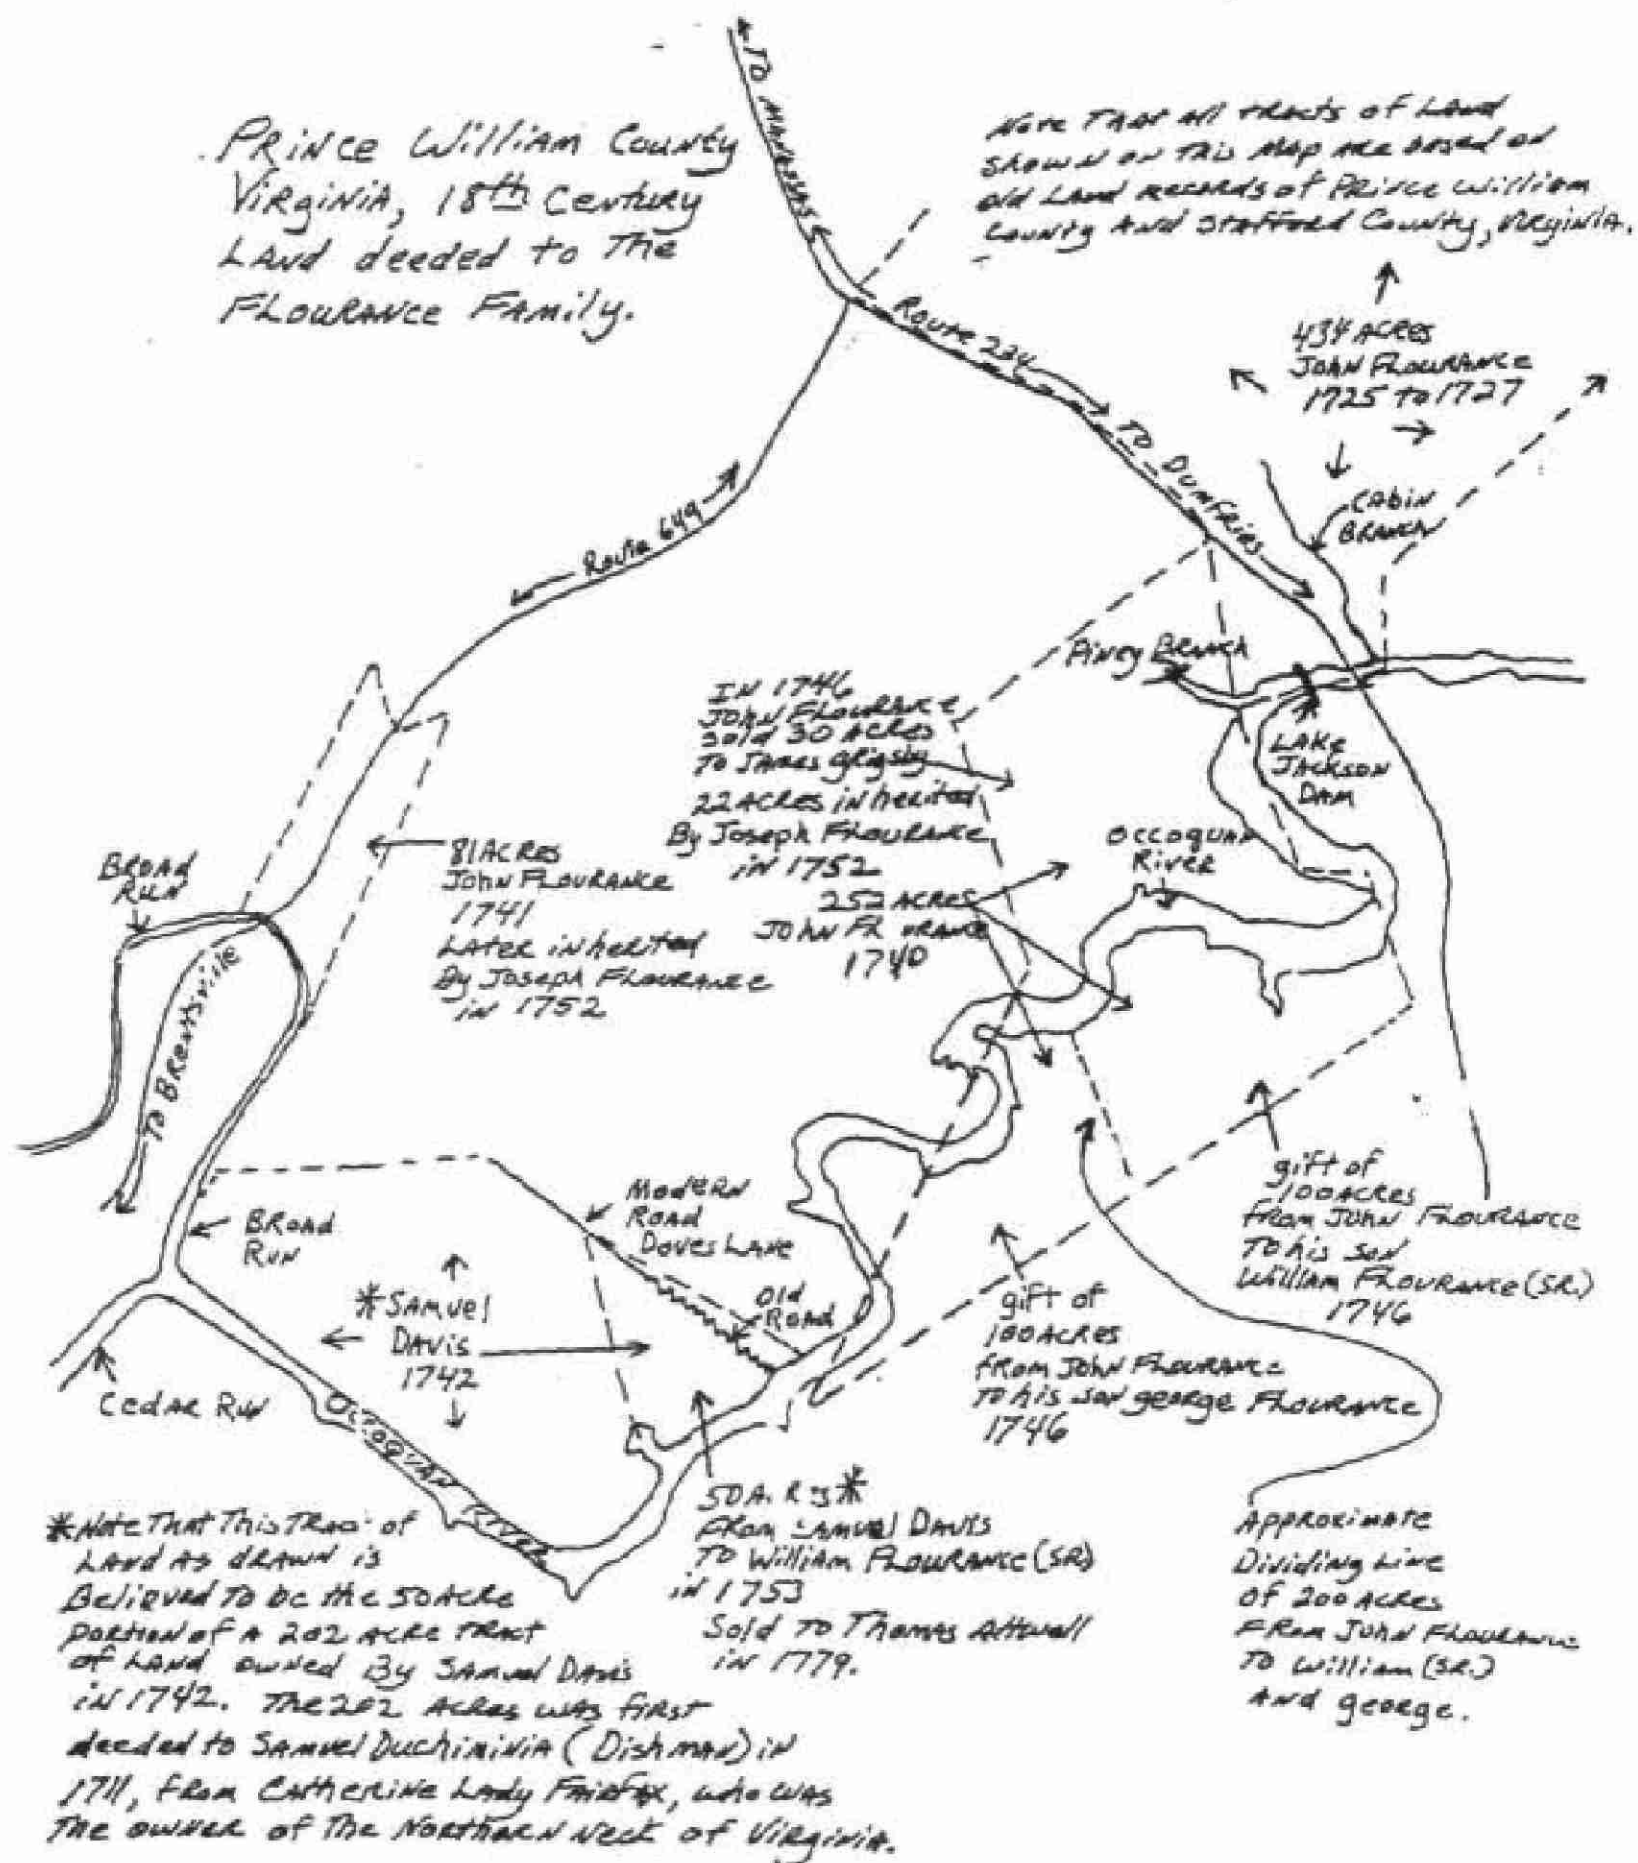 PRINCE William County
VIRGINIA, 18th Century
LANd deeded to The
FLOURANCE FAMily.
TO MANASSAS
Note That all tracts of Land
shown on this Map are based on
old Land records of Prince William
County And Stafford County, Virginia.
434 ACRES
JOHN FLOURANCE
1725 to 1727
Route 234
TO DUMFRIES
CABIN
BRANCH
Route 649
Piney BRANCH
LAKE
JACKSON
DAM
IN 1746
JOHN FLOURANCE
Sold 30 ACRES
TO JAMES Grigsby
22 ACRES inherited
By Joseph FLOURANCE
in 1752
252 ACRES
JOHN FL URANCE
1740
OCCOQUAN
RIVER
BROAD
RUN
81 ACRES
John FLOURANCE
1741
LATER inherited
By Joseph FLOURANCE
in 1752
TO BRENTSVILLE
BROAD
RUN
MODERN
ROAD
DOVES LANE
Old
ROAD
*SAMUEL
DAVIS
1742
CEDAR RUN
OCCOQUAN RIVER
gift of
100 ACRES
from JOHN FLOURANCE
TO his son
William FLOURANCE (SR.)
1746
gift of
100 ACRES
from John FLOURANCE
TO his son george FLOURANCE
1746
50 A. R s*
FROM SAMUEL DAVIS
TO William FLOURANCE (SR)
in 1753
Sold TO Thomas Attwell
in 1779.
Approximate
Dividing Line
of 200 ACRES
FROM JOHN FLOURANCE
TO William (SR.)
And george.
*Note That This Tract of
LAND AS drawn is
Believed To be the 50 Acre
portion of A 202 Acre TRACT
of LAND owned By SAMUEL DAVIS
in 1742. The 202 Acres was first
deeded to SAMUEL Duchiminia (Dishman) in
1711, from Catherine Lady Fairfax, who was
The owner of the Northern Neck of Virginia.